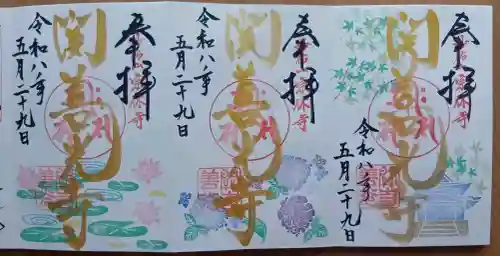 奉拝
関善光寺
令和八年
五月二十九日
奉拝
関善光寺
令和八年
五月二十九日
奉拝
関善光寺
令和八年
五月二十九日